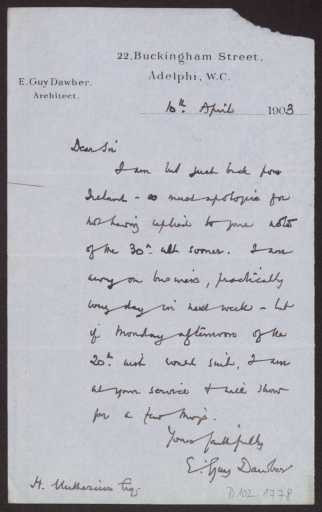 22, Buckingham Street,
Adelphi, W.C.
E. Guy Dawber.
Architect.
10th. April 1903
Dear Sir
I am but just back from
Ireland - so must apologise for
not having replied to your note
of the 30th ult sooner. I am
away on business, practically
every day in next week - but
if Monday afternoon of the
20th inst would suit, I am
at your service & will show
you a few things.
Yours faithfully
E. Guy Dawber
H. Muthesius Esq.
D 102-1778